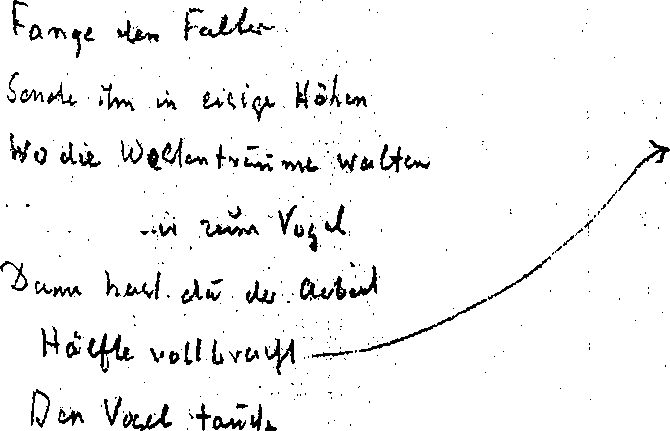 Fange den Falter
Sende ihn in eisige Höhen
Wo die Wolkenträume walten
zum Vogel
Dann hast du der Arbeit
Hälfte vollbracht
Den Vogel tauche